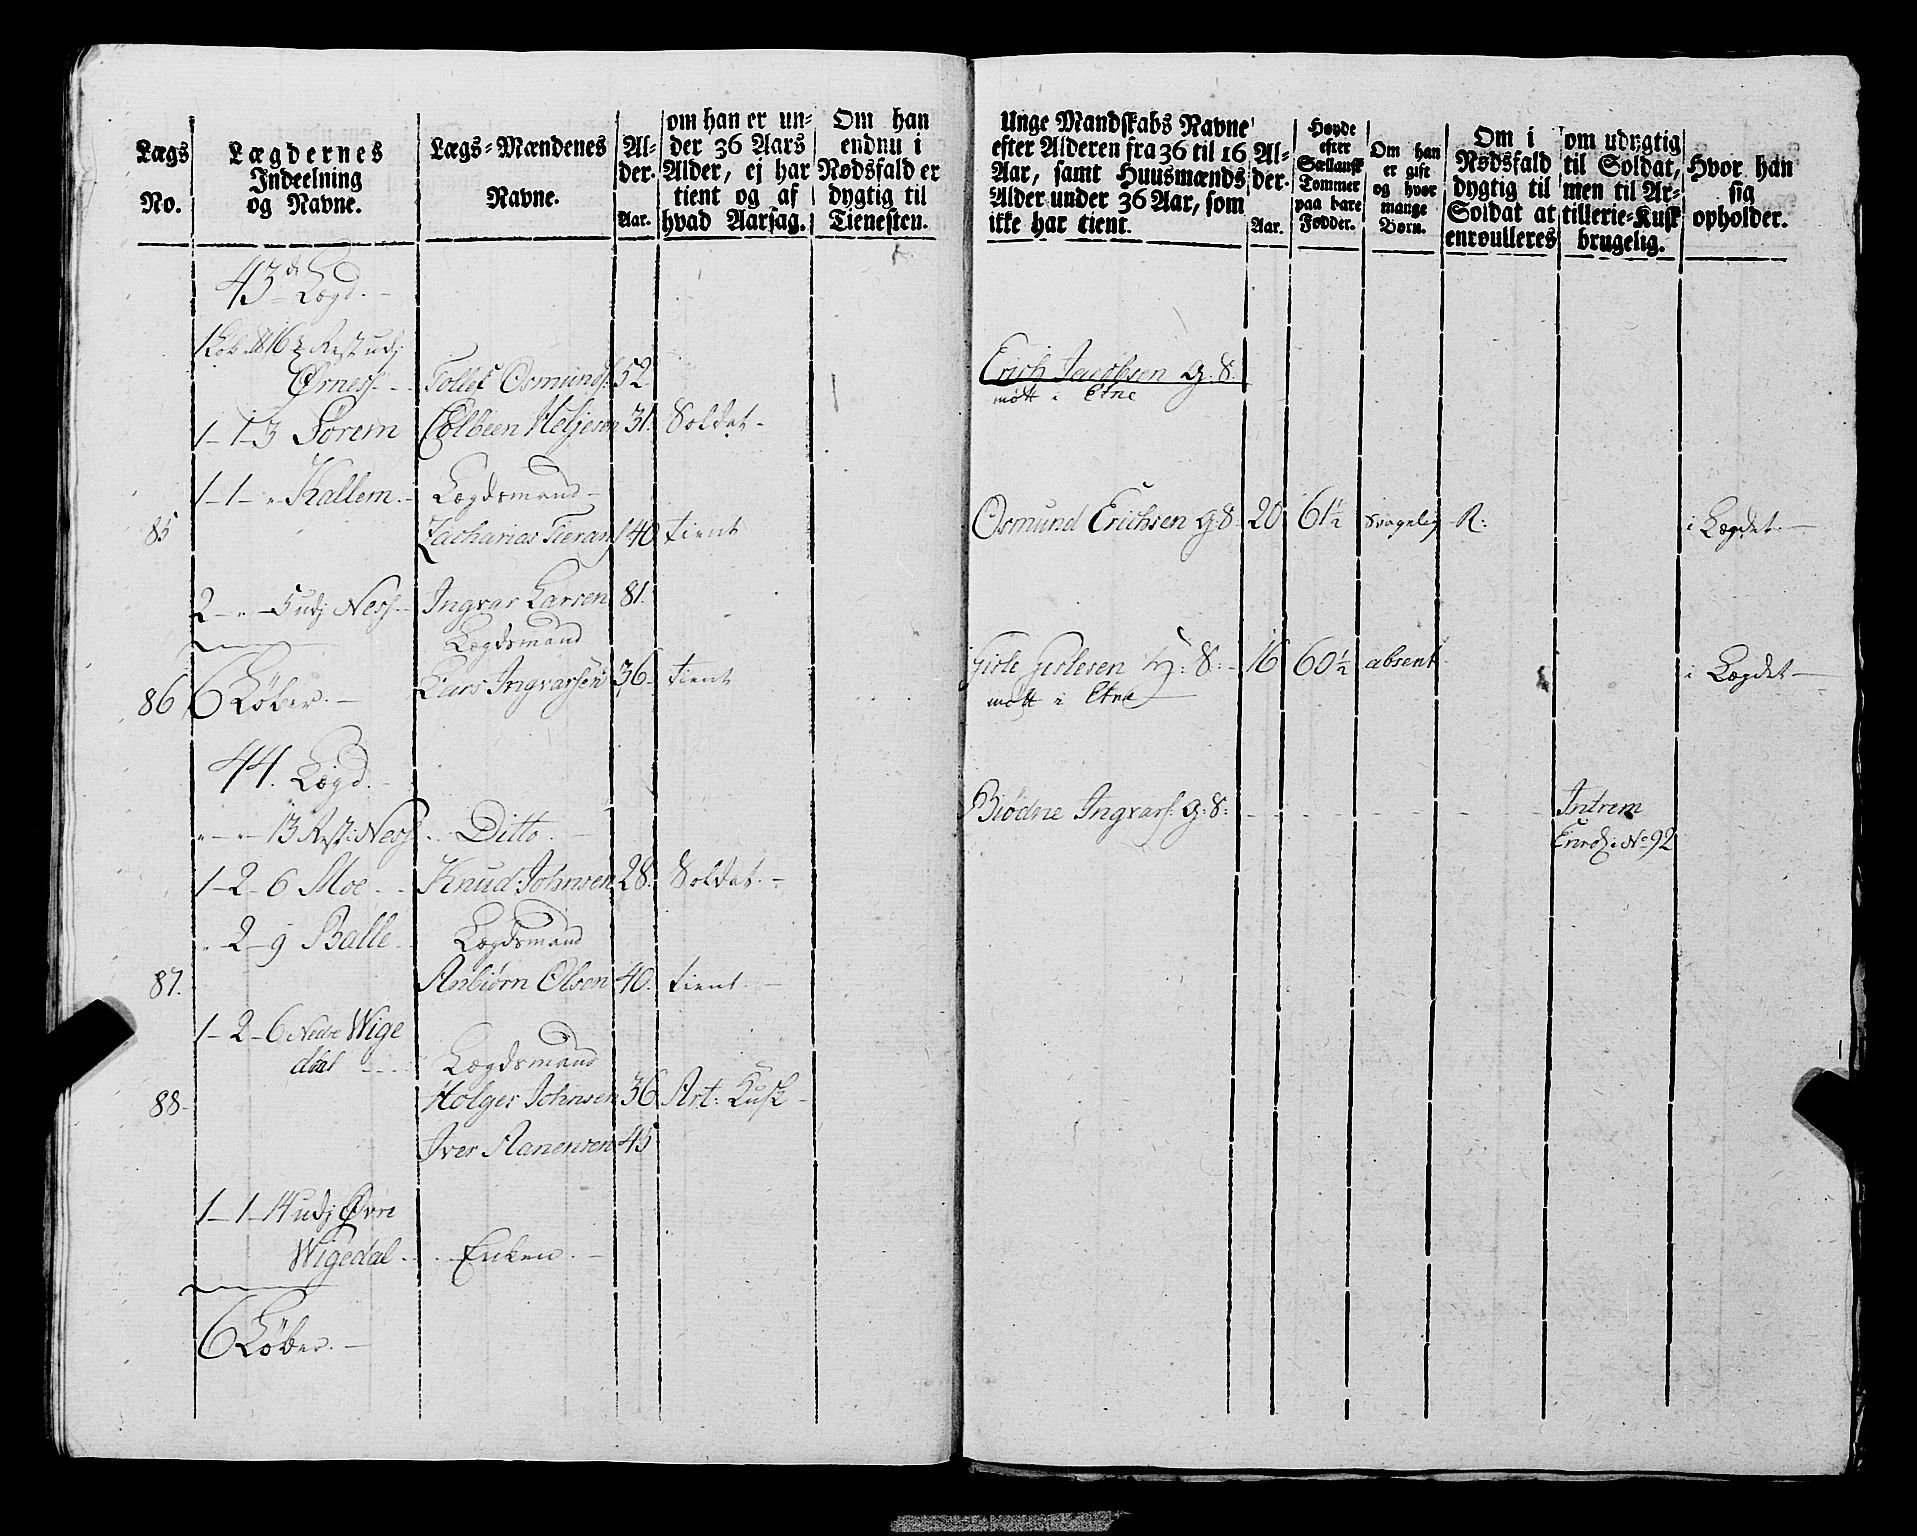 Lægs No.
Lægdernes Indeelning og Navne.
Lægs-Mændenes Navne.
Alder. Aar.
om han er under 36 Aars Alder, ej har tient og af hvad Aarsag.
Om han endnu i Nødsfald er dygtig til Tienesten.
43de Lægd.
1 Løb 16 Rest udj
Ørness. Tollef Osmunds. 52
1-1-3 Sørem Colbeen Heljesen 31. Soldat
1-1-" Kallem. Lægdsmand
85 Zacharias 40 tient
2-"-5 udj Ness Ingvar Larsen 81.
Lægdsmand
86 6 Løber. Lars Ingvarsen 36 tient
44. Lægd.
"-"-13 Rest: Ness Ditto.
1-2-6 Moe Knud Johnsen 28. Soldat.
"-2-9 Balle Lægdsmand
87. Anbiørn Olsen 40. tient.
1-2-6 Nedre Wige
dal Lægdsmand
88 Holger Johnsen 36 Art: Kusk
Iver Aanensen 45
1-1-14 udj Øvre
Wigedal Enken.
6 Løber.
Unge Mandskabs Navne efter Alderen fra 36 til 16 Aar, samt Huusmænds Alder under 36 Aar, som ikke har tient.
Alder. Aar.
Høyde efter Siællansk Tommer paa bare Fødder.
Om han er gift og hvor mange Børn.
Om i Nødsfald dygtig til Soldat at enroulleres
om udygtig til Soldat, men til Artillerie-Kusk brugelig.
Hvor han sig opholder.
Erich Jacobsen G: S.
mött i Etne
Osmund Erichsen G S 20 61 1/2 svagelig R: i Lægdet.
Gisle Gislesen H: S: 16 60 1/2 absent i Lægdet
mött i Etne
Biödne Ingvars. G: S: Intrem
Enrol: No 92